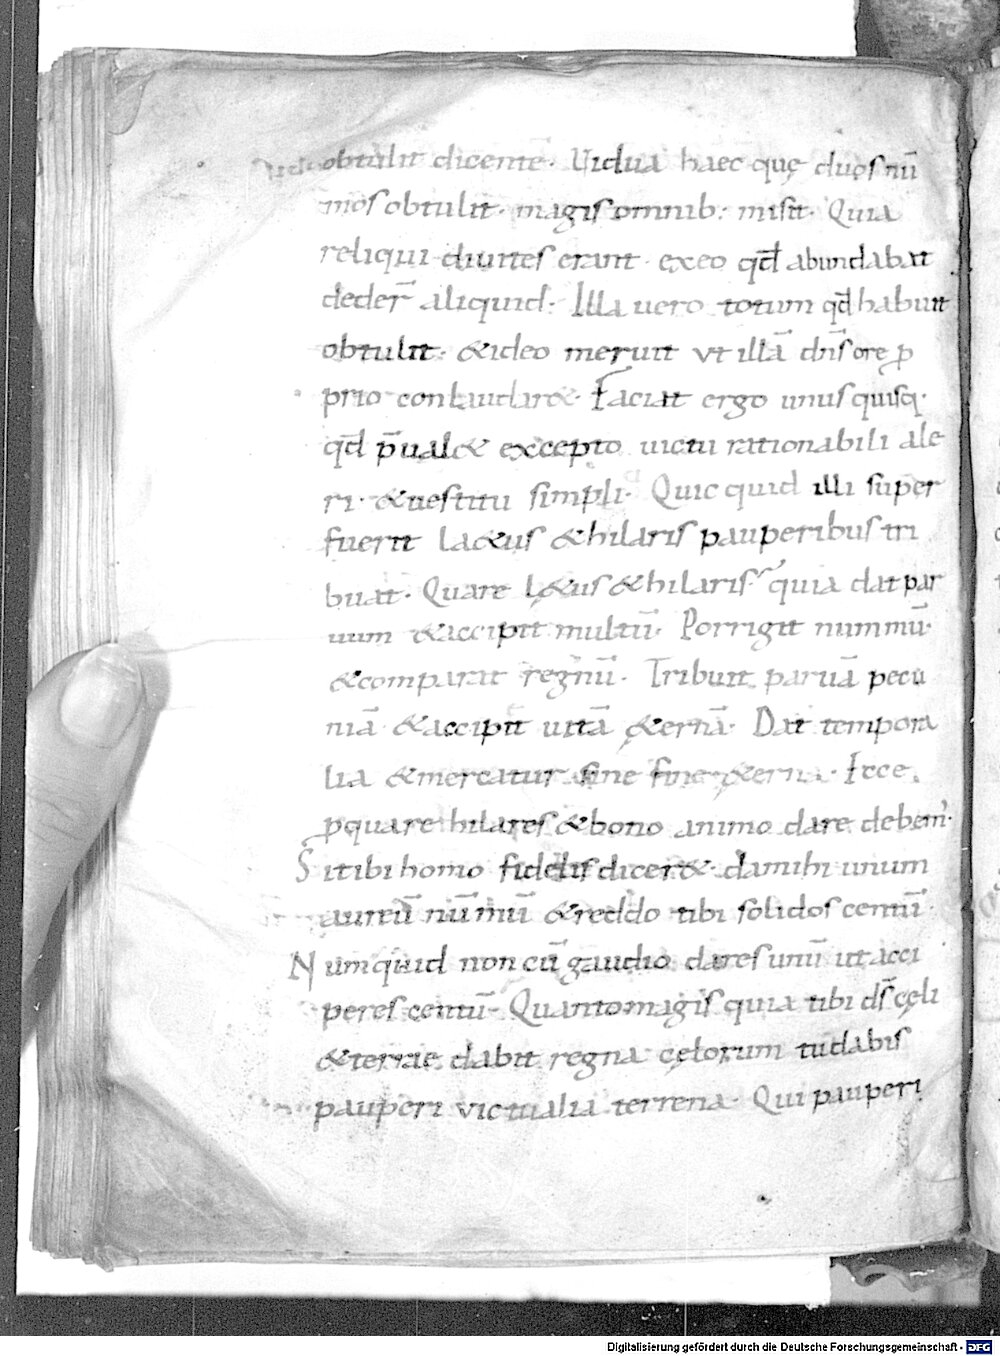 obtulit dicentē· Uidua haec quę duos nū
mos obtulit· magis omnib: misit· Quia
reliqui diuites erant· exeo qđ abundabat
deder̄ aliquid· Illa uero totum qđ habuit
obtulit· &ideo meruit vt illā dn̄s ore ꝓ
prio conlaudar&· Faciat ergo unusquisq·
qđ p̄ual& excepto uictu rationabili ale
ri· &uestitu simpli· Quicquid illi super
fuerit la&us &hilaris pauperibus tri
buat· Quare l&us &hilaris quia dat par
uum &accipit multū· Porrigit nummū·
&comparat regnū· Tribuit paruā pecu
niā &accipit uitā &ernā· Dat tempora
lia &mercatur sine fine &erna· Ecce
ꝓquare hilares &bono animo dare debem'·
Si tibi homo fidelis dicer&· damihi unum
aureū nūmū &reddo tibi solidos centū·
Numquid non cū gaudio dares unū ut acci
peres centū· Quantomagis quia tibi ds̄ cęli
&terrae dabit regna cęlorum tudabis
pauperi victualia terrena· Qui pauperi
Digitalisierung gefördert durch die Deutsche Forschungsgemeinschaft - DFG